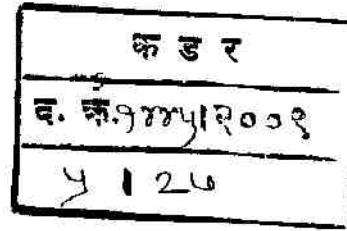 क ड र
द. क्र.१४४५/२००९
५ / २७